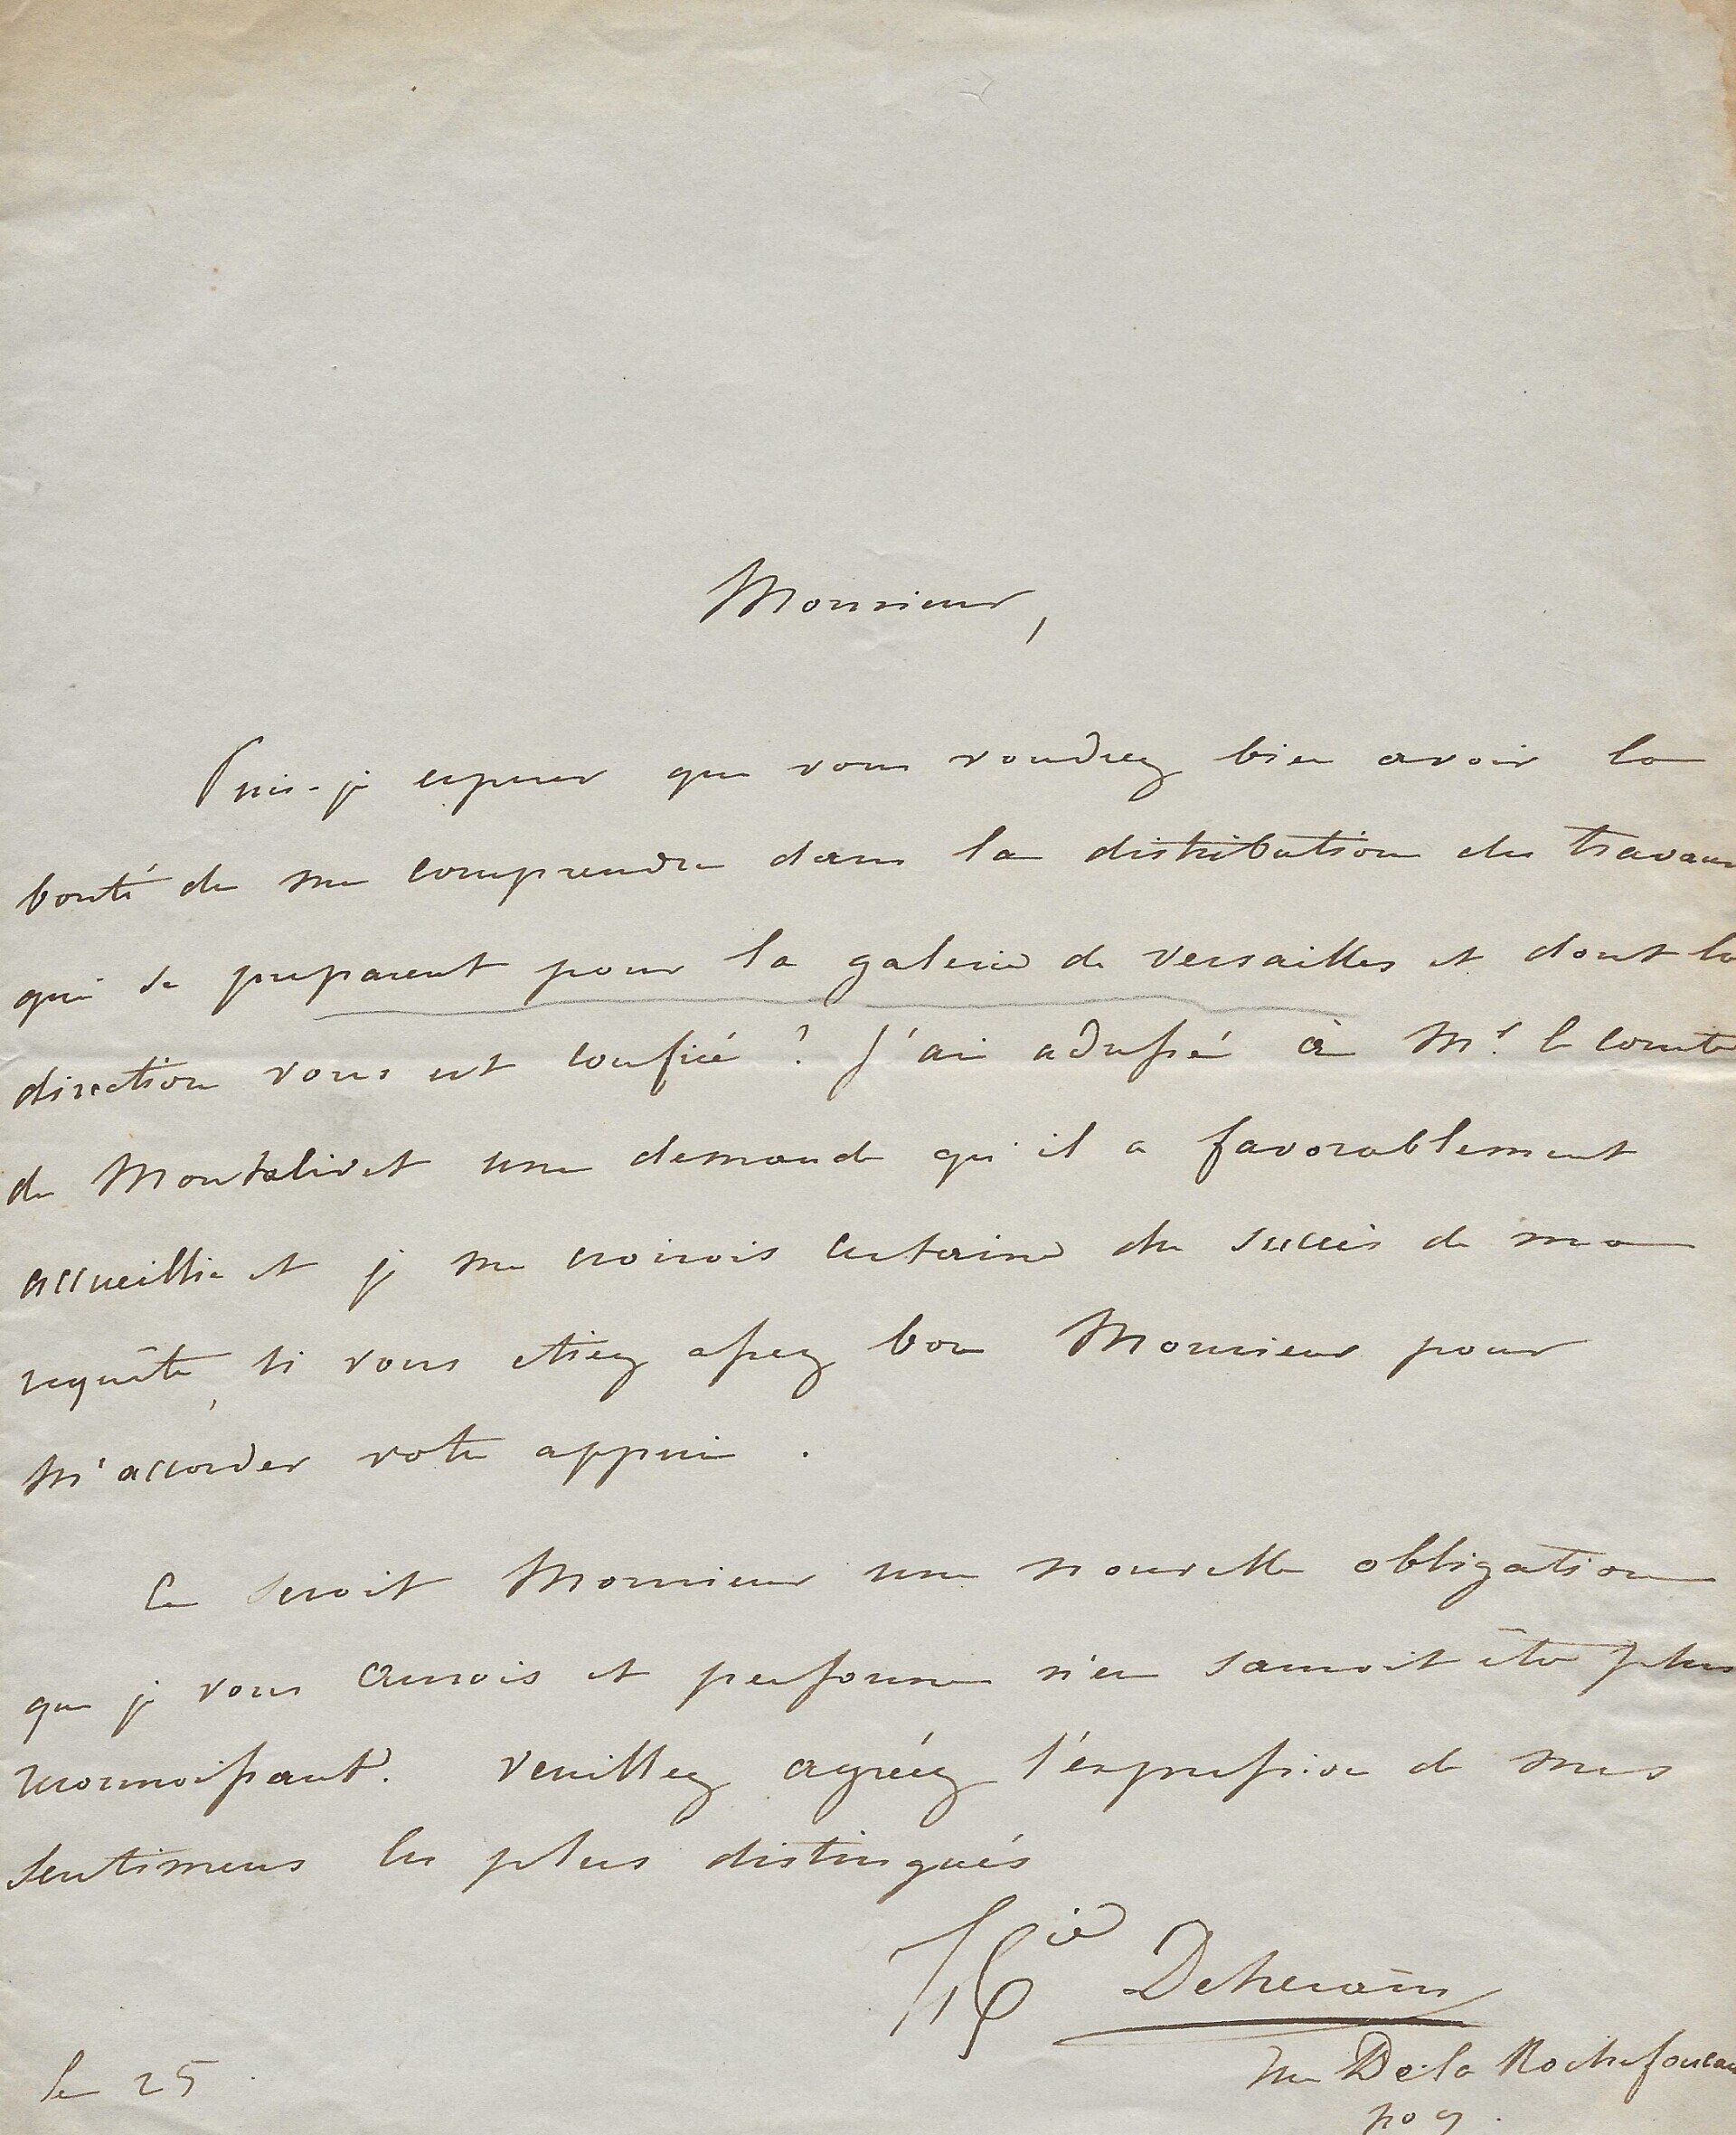 Monsieur,
Puis-je esperer que vous voudrez bien avoir la
bonté de me comprendre dans la distribution des travaux
qui se preparent pour la galerie de Versailles et dont la
direction vous est confiée ? J'ai adressé à Mr. le comte
de Montalivet une demande qu'il a favorablement
accueillie et je me croirois certaine du succès de ma
requête, si vous etiez assez bon Monsieur pour
m'accorder votre appui .
Ce seroit Monsieur une nouvelle obligation
que je vous aurois et personne n'en sauroit être plus
reconnoissante. Veuillez agréez l'expression de mes
sentimens les plus distingués
Hie Deherain
rue De la Rochefoucau
no 9.
le 25